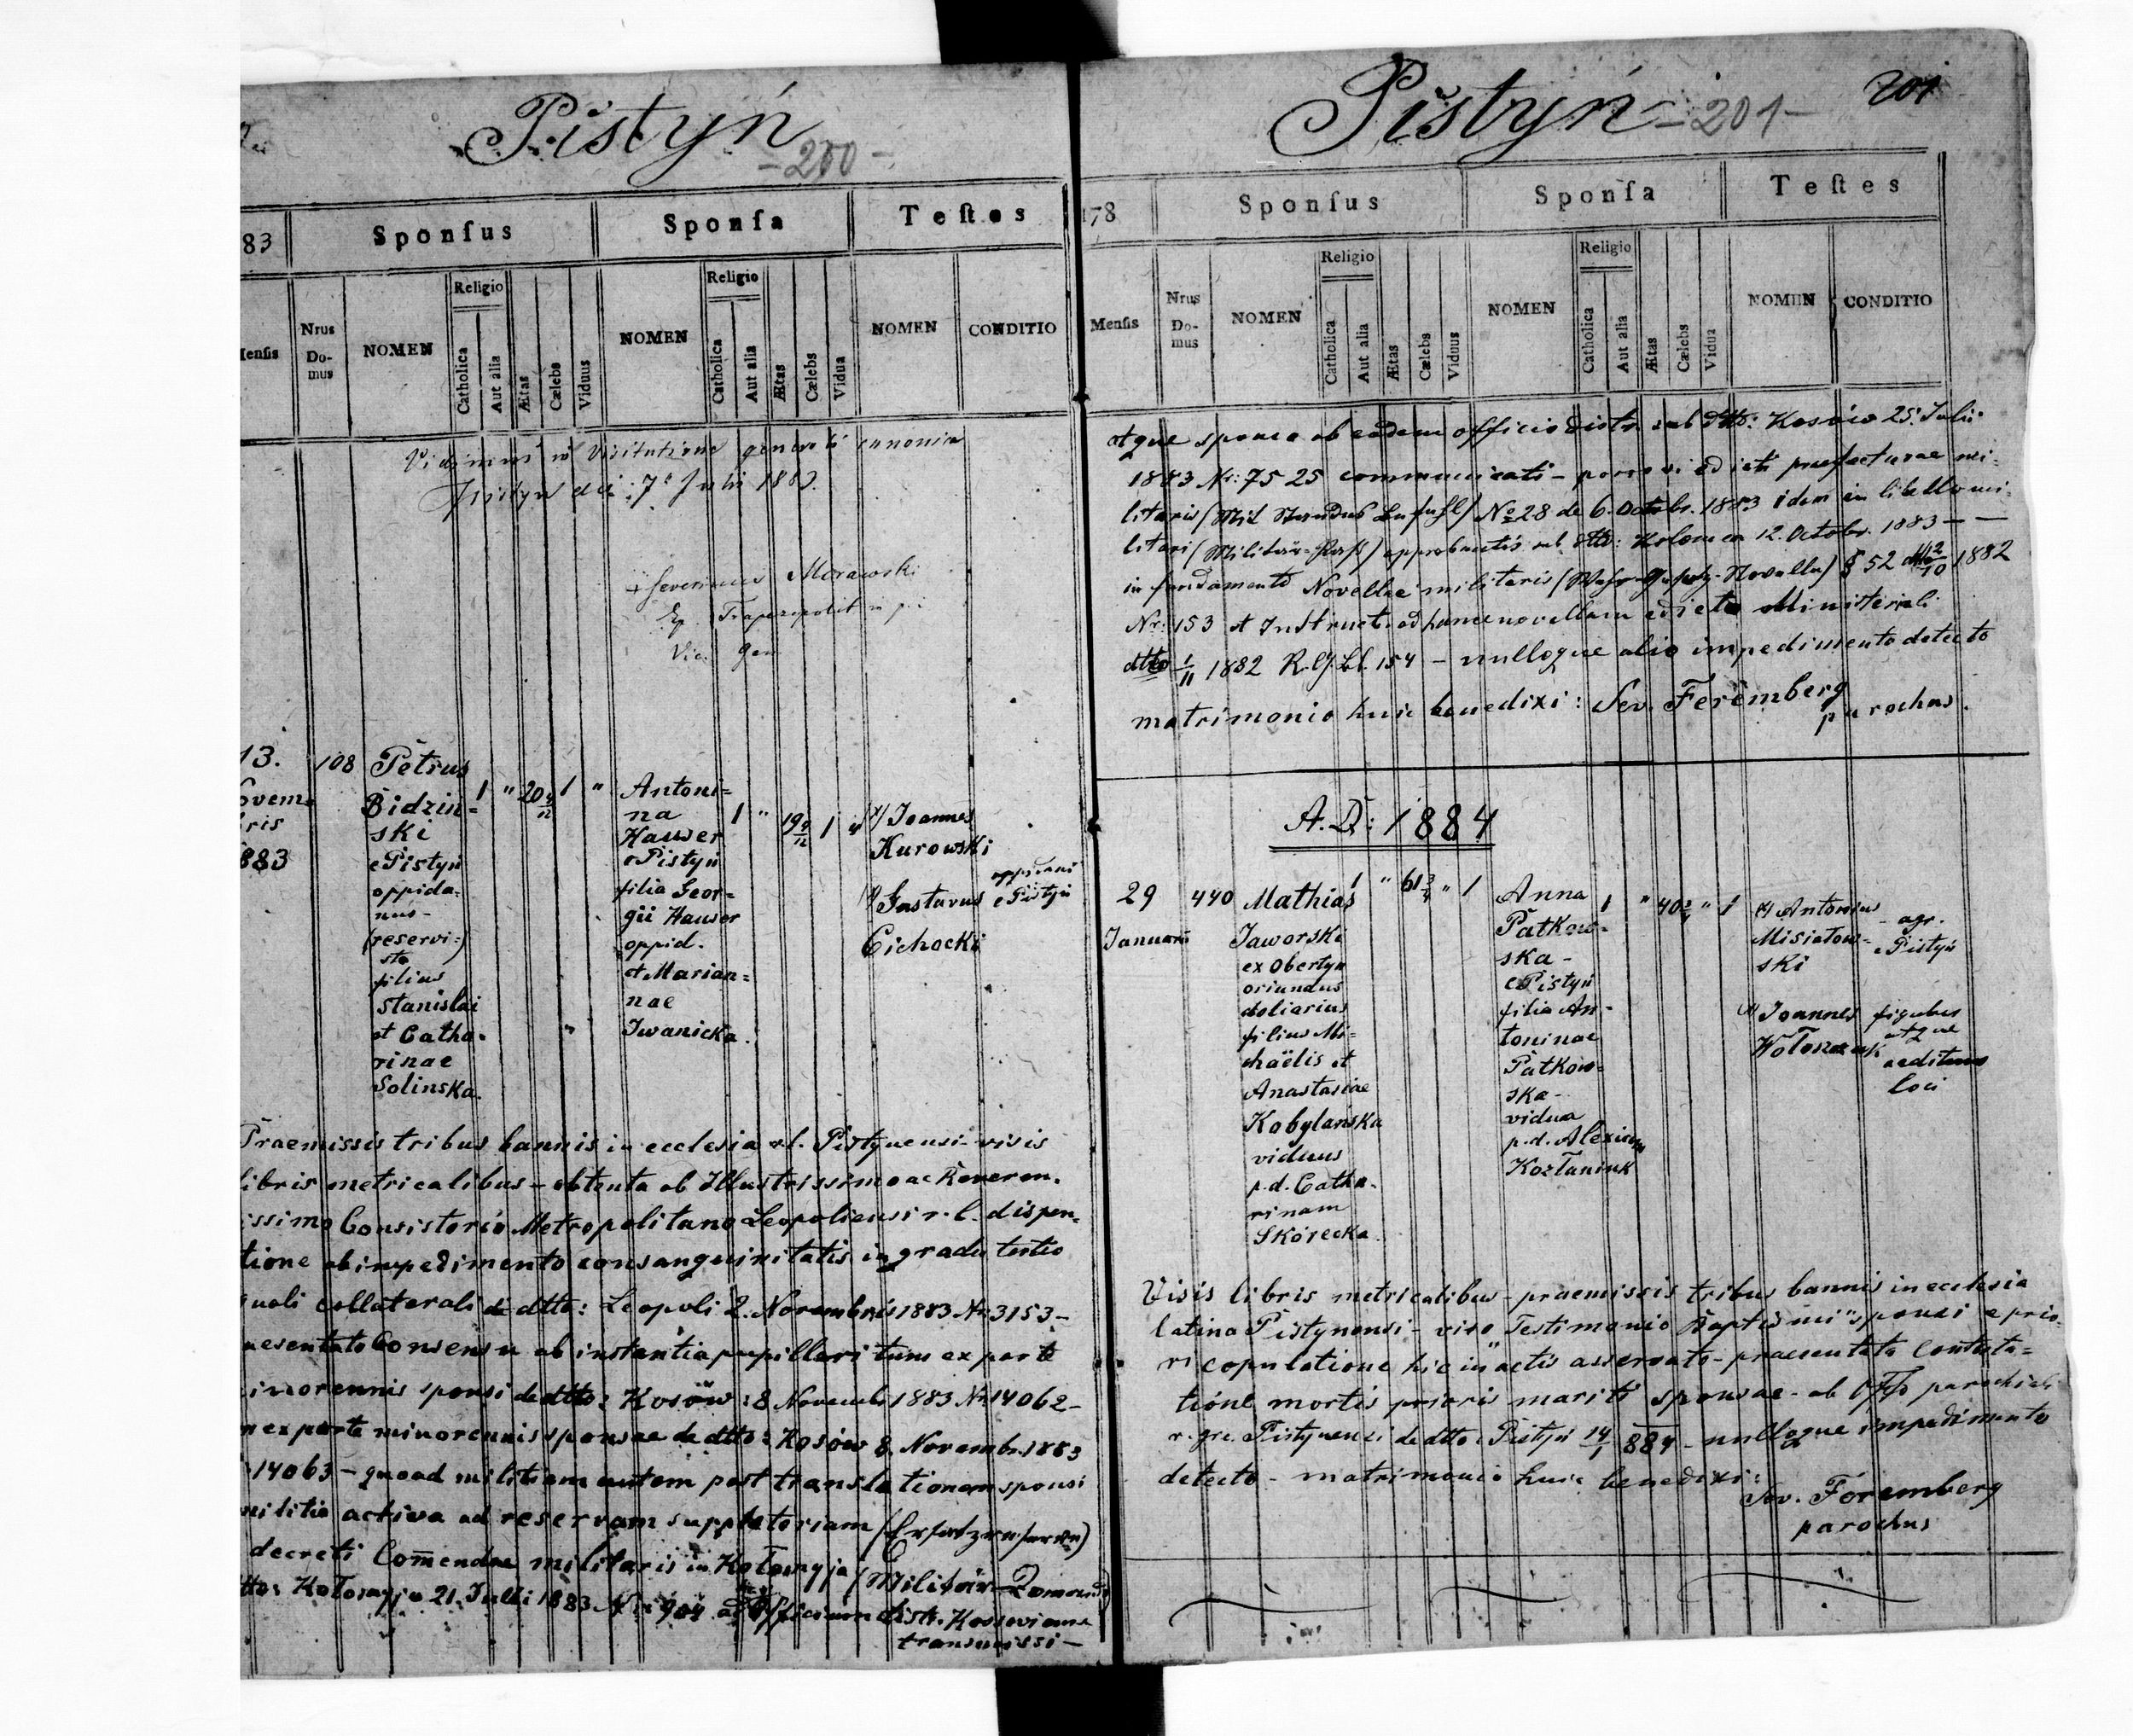 Pistyń
- 200 -
83
Sponſus
Sponſa
Teſtes
Menſis
Nrus Do-mus
NOMEN
Religio
Catholica
Aut alia
Ætas
Cælebs
Viduus
NOMEN
Religio
Catholica
Aut alia
Ætas
Cælebs
Vidua
NOMEN
CONDITIO
Visitatione
7 Julii 1883.
+ Severinus Morawski
Ep. Trapezopolit
Vic. gen
13.
ris
883
108
Petrus
Bidzin-
ski
e Pistyń
oppida-
nus-
(reservi-)
sta
filius
Stanislai
et Catha-
rinae
Solinska.
1 " 20 1 "
Antoni-
na
Hauser
e Pistyń
filia Geor-
gii Hauser
oppid.
et Marian-
nae
Iwanicka.
1 " 19 1
Joannes
Kurowski
Gustavus
Cichocki
oppidani
e Pistyń
Praemissis tribus bannis in ecclesia r.l. Pistynensi - visis
libris metricalibus - obtenta ab Illustrissimo ac Reveren-
issimo Consistorio Metropolitano Leopoliensi r.l. dispen-
tione ab impedimento consanguinitatis in gradu tertio
collaterali de dtto: Leopoli 2. Novembris 1883 Nr 3153 -
consensu ab instantia pupillari tum ex parte
minorennis sponsi de dtto: Kosów: 8 Novemb. 1883 Nr. 14062 -
ex parte minorennis sponsae de dtto: Kosów 8. Novembr. 1883
14063 - quoad militiam autem post translationem sponsi
militia activa ad reservam suppletoriam (Ersatzreserve)
decreti Comendae militaris in Kołomyja (Militär-
Kołomyja 21. Julii 1883 Nr 904 ad Officium distr.
transmissi -
Pistyń - 201 -
201
178
Sponſus
Sponſa
Teſtes
Menſis
Nrus Do-mus
NOMEN
Religio
Catholica
Aut alia
Ætas
Cælebs
Viduus
NOMEN
Religio
Catholica
Aut alia
Ætas
Cælebs
Vidua
NOMEN
CONDITIO
atque sponso ab eodem officio distr. sub dtto: Kosów 25. Julii
1883 Nr: 7525 communicati - porro vi edicti praefecturae mi-
litaris (Mil. ) No 28 de 6. Octobr. 1883 idem in libello mi-
litari (Militär-Pass) approbantis sub dtto: Kolomea 12. Octobr. 1883 - -
in fundamento Novellae militaris § 52 1882
Nr: 153 et Instruct. ad hanc novellam edicto Ministeriali
dtto 1/11 1882 R.G.Bl. 154 - nulloque alio impedimento detecto
matrimonio huic benedixi: Sev. Feremberg
parochus.
A.D: 1884
29
Januarii
440
Mathias
Jaworski
ex Obertyn
oriundus
doliarius
filius Mi-
chaëlis et
Anastasiae
Kobylańska
viduus
p.d. Catha-
rinam
Skórecka.
1 " 61 3/4 " 1
Anna
Patkow-
ska -
e Pistyń
filia An-
toninae
Patkow-
ska -
vidua
p.d. Alexium
Kozłaniuk
1 " 40 " 1
Antonius
Misiatow-
ski
agr.
e Pistyń
Joannes
figulus
atque
aedituus
loci
Visis libris metricalibus - praemissis tribus bannis in ecclesia
latina Pistynensi - viso Testimonio Baptismi sponsi e prio-
ri copulatione hic in actis asservato - praesentata Contesta-
tione mortis prioris mariti sponsae - ab Off. parochiali
r. gr. Pistynensi de dtto: Pistyń 14/1 884 - nulloque impedimento
detecto - matrimonio huic benedixi:
Sev. Foremberg
parochus